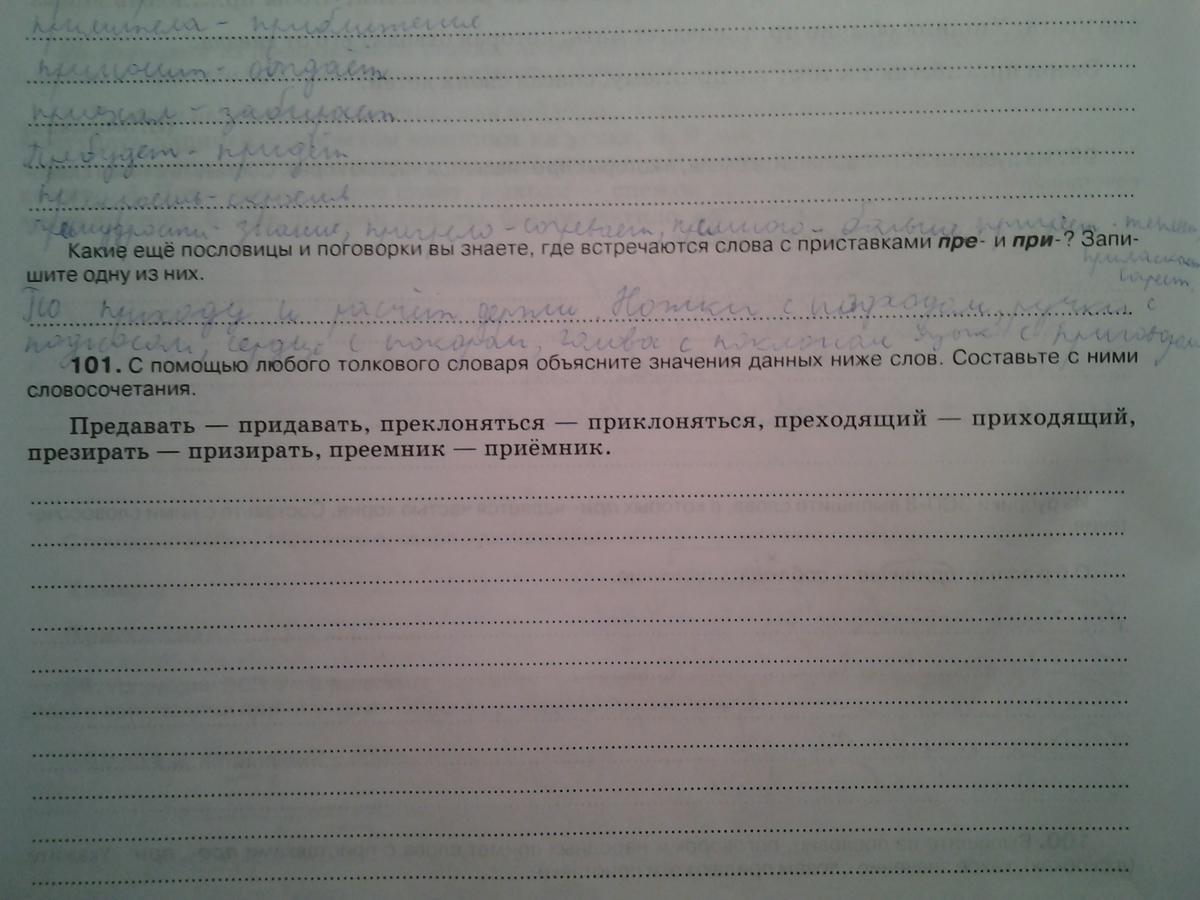 примитела - приближение
приносит - отдаёт
приехал - забирает
Пребудет - придёт
премудрости - знание, пригрело - согревает, премного - больше
Какие ещё пословицы и поговорки вы знаете, где встречаются слова с приставками пре- и при-? Запи-
шите одну из них.
По приходу и расчёт держи. Ножки с подходом, ручки с
подносом, сердце с покором, голова с поклоном язык с приговором
101. С помощью любого толкового словаря объясните значения данных ниже слов. Составьте с ними
словосочетания.
Предавать — придавать, преклоняться — приклоняться, преходящий — приходящий,
презирать — призирать, преемник — приёмник.